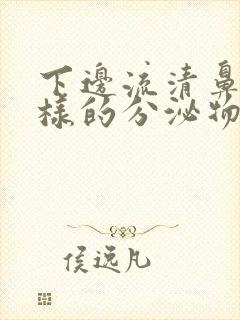 下邊流清鼻
樣的分泌物
侯逸凡